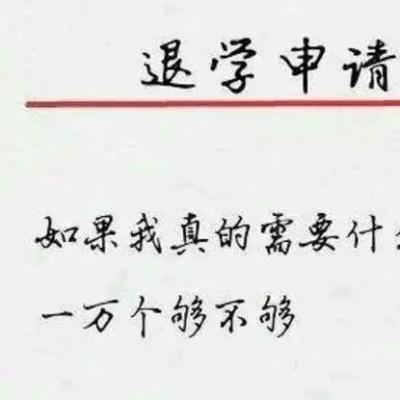 退学申请
如果我真的需要什
一万个够不够